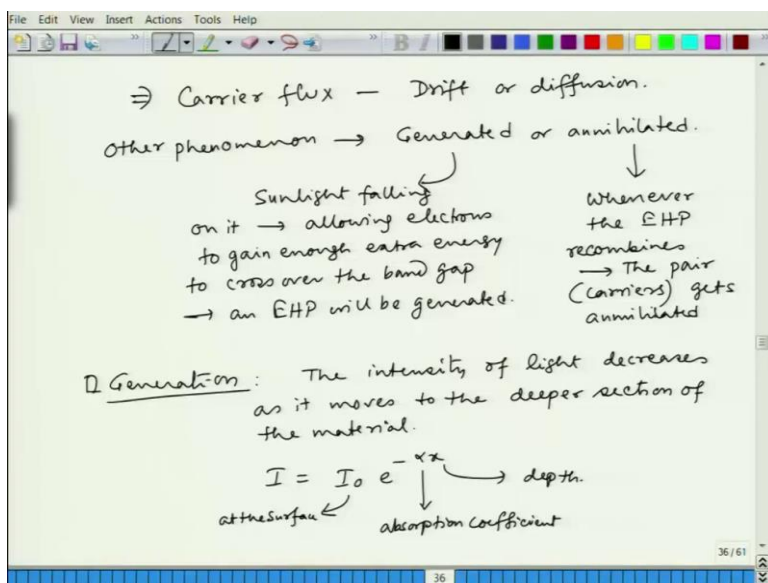 File Edit View Insert Actions Tools Help
B I
⇒ Carrier flux — Drift or diffusion.
Other phenomenon → Generated or annihilated.
Sunlight falling
on it → allowing electrons
to gain enough extra energy
to cross over the band gap
→ an EHP will be generated.
Whenever
the EHP
recombines
→ The pair
(carriers) gets
annihilated
Generation: The intensity of light decreases
as it moves to the deeper section of
the material.
I = I₀ e^{-αx} → depth.
at the surface
absorption coefficient
36/61
36